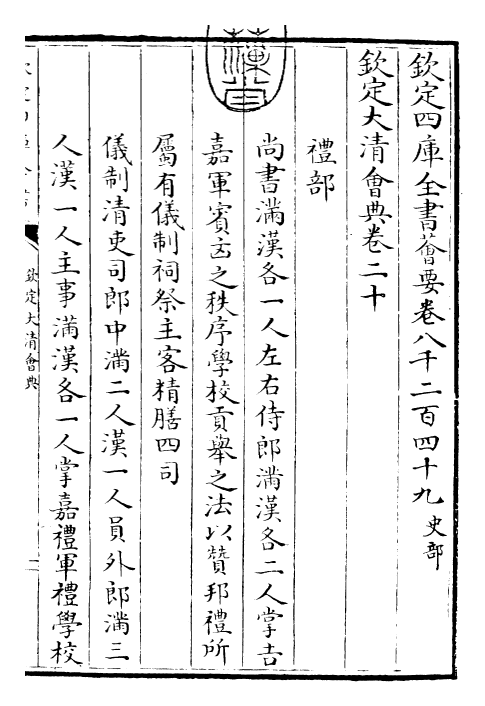 欽定四庫全書薈要卷八千二百四十九 史部
欽定大清會典卷二十
禮部
尚書滿漢各一人左右侍郎滿漢各二人掌吉
嘉軍賓凶之秩序學校貢舉之法以贊邦禮所
屬有儀制祠祭主客精膳四司
儀制清吏司郎中滿二人漢一人員外郎滿三
人漢一人主事滿漢各一人掌嘉禮軍禮學校
欽定大清會典